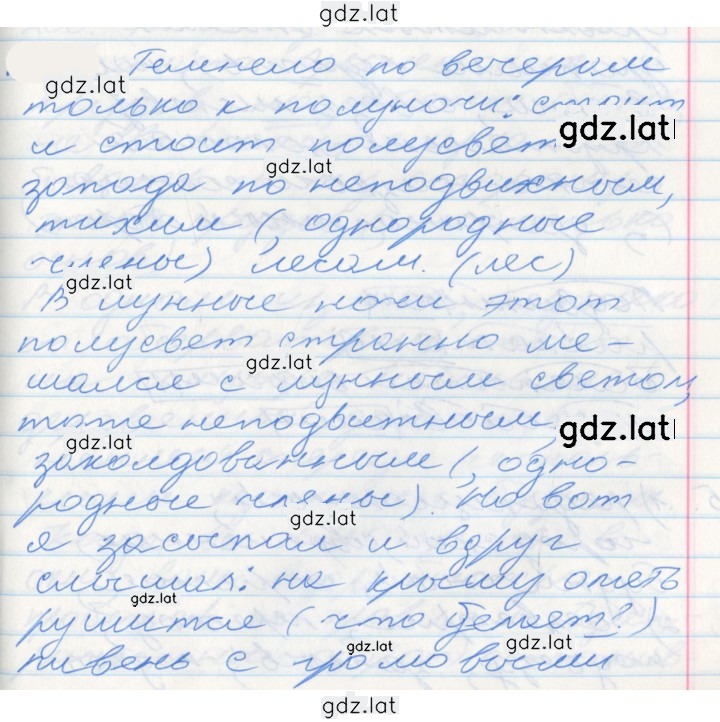 gdz.lat
Темнело по вечерам
gdz.lat
только к полуночи: стоит
gdz.lat
и стоит полусвет
gdz.lat
запада по неподвижным,
тихим (, однородные
члены) лесам. (лес)
gdz.lat
В лунные ночи этот
полусвет странно ме-
gdz.lat
шался с лунным светом,
тоже неподвижным,
gdz.lat
gdz.lat
заколдованным (, одно-
родные члены). Но вот
gdz.lat
я засыпал и вдруг
слышал: на крышу опять
gdz.lat
рушится (что делает?)
gdz.lat
gdz.lat
ливень с громовыми
gdz.lat